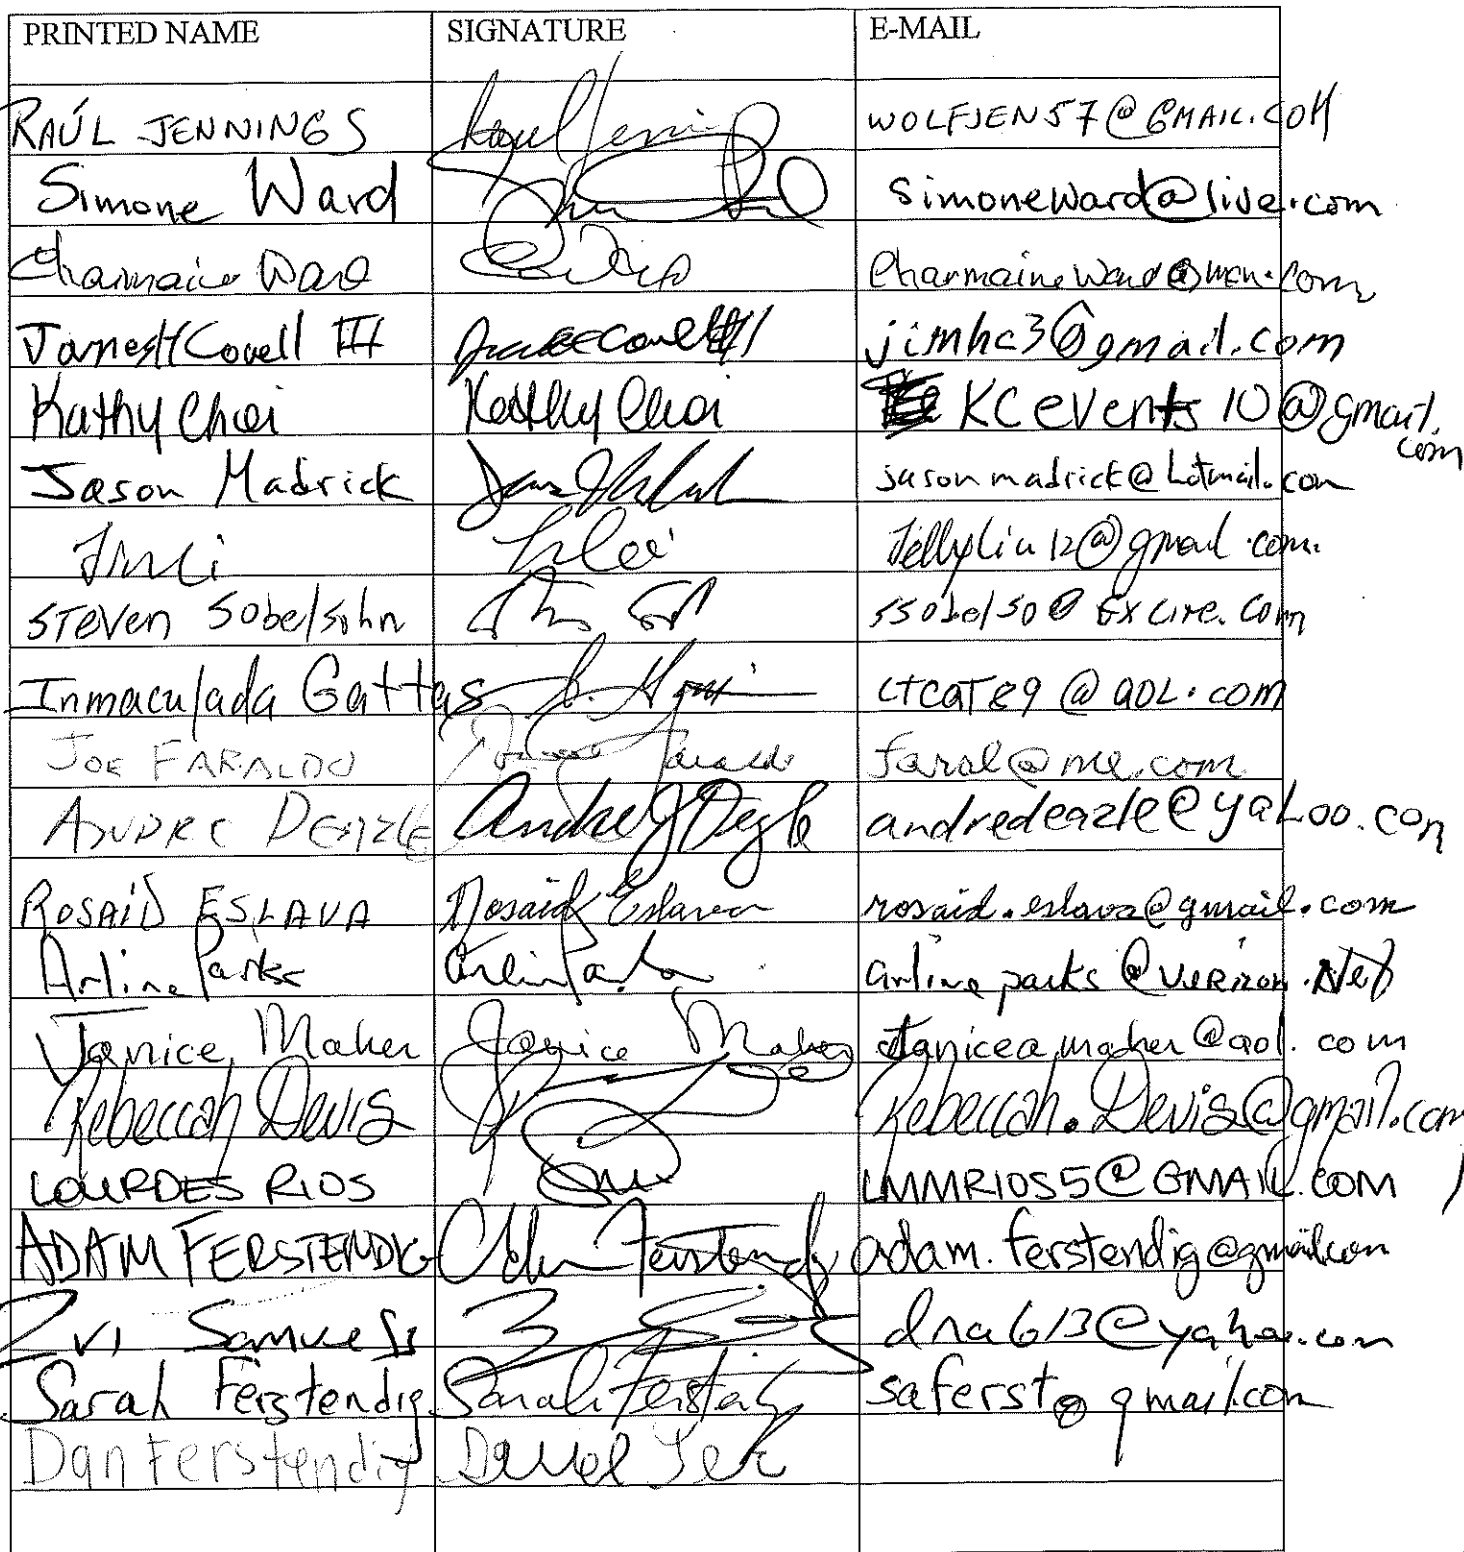 PRINTED NAME SIGNATURE E-MAIL
RAÚL JENNINGS WOLFJEN57@GMAIL.COM
Simone Ward simoneward@live.com
Charmaine Ward CharmaineWard@msn.com
James H Covell III jimhc3@gmail.com
Kathy Choi Kathy Choi KCevents10@gmail.com
Jason Madrick jasonmadrick@hotmail.com
Jellyliu12@gmail.com.
STEVEN Sobelsohn ssobelso@Excite.com
Inmaculada Gattas LTCAT89@aol.com
JOE FARALDO faral@me.com
ANDRE DEAZLE andredeazle@yahoo.com
ROSAID ESLAVA Rosaid Eslava rosaid.eslava@gmail.com
Arline Parks Arline Parks arlineparks@verizon.Net
Janice Maher Janice Maher Janiceamaher@aol.com
Rebeccah Devis Rebeccah.Devis@gmail.com
LOURDES RIOS LMMRIOS5@GMAIL.COM
ADAM FERSTENDIG adam.ferstendig@gmail.com
Zvi Samuels dna613@yahoo.com
Sarah Ferstendig Sarah Ferstendig saferst@gmail.com
Dan Ferstendig